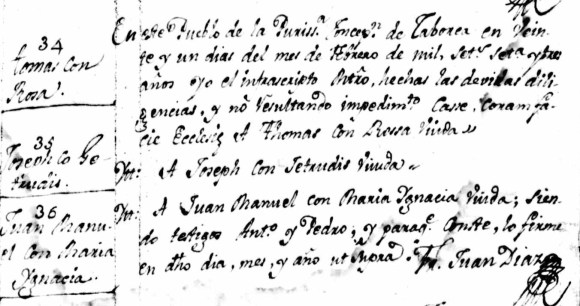 34
tomas con
Rosa.
En este Pueblo de la Puriss.ᵃ Concep.ⁿ de Taborea en Vein
te y un dias del mes de Febrero de mil, Set.ˢ y tres
años yo el infrascripto Mrõ, hechas las devidas dili
gencias, y no resultando impedim.ᵗᵒ Case, Coram fa
cie Ecclesiæ A Thomas con Rossa viuda
35
Joseph co Ge
trudis.
Yt: A Joseph con Jetrudis viuda
36
Juan Manu
el con Maria
Ygnacia.
Yt: A Juan Manuel con Maria Ygnacia Viuda; Sien
do testigos Ant.º y Pedro; y paraq̃ Conste, lo firme
en dho dia, mes, y año ut supra. Fr. Juan Diaz